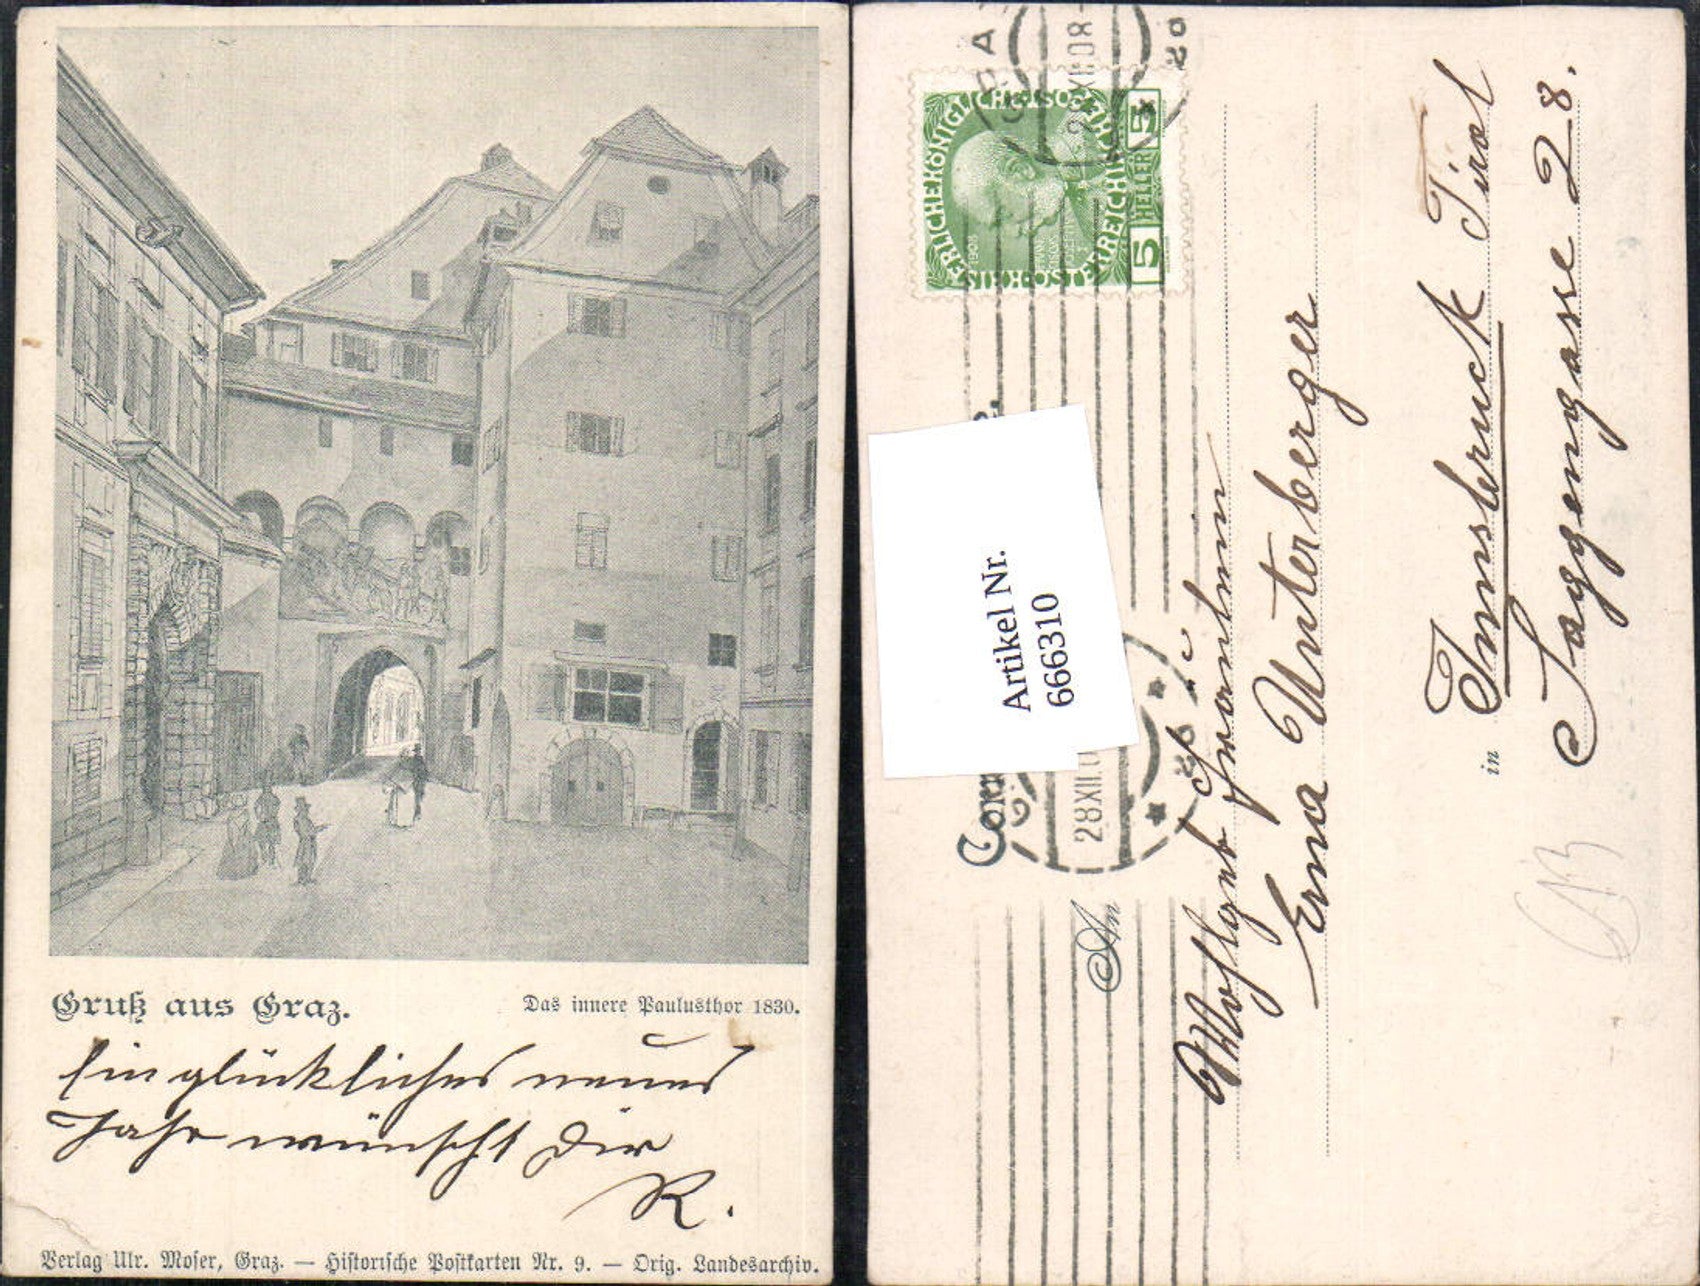 Gruß aus Graz.
Das innere Paulusthor 1830.
Ein glückliches neues
Jahr wünscht Dir
R.
Verlag Ulr. Moser, Graz. — Historische Postkarten Nr. 9. — Orig. Landesarchiv.
KAISERLICHE KÖNIGLICHE ÖSTERREICHISCHE
5 HELLER 5
1908
28 XII 08
28 XII
Artikel Nr.
666310
An
Wohlgeb Fräulein
Erna Unterberger
in Innsbruck Tirol
Saggengasse 28.